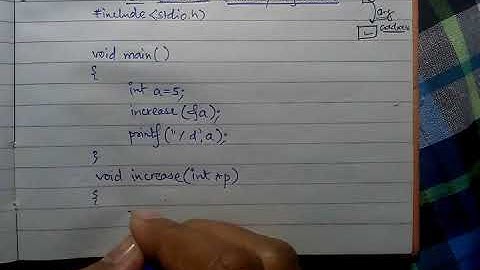 #include <stdio.h>
arg
address
void main()
{
int a=5;
increase(&a);
printf("%d",a);
}
void increase(int *p)
{